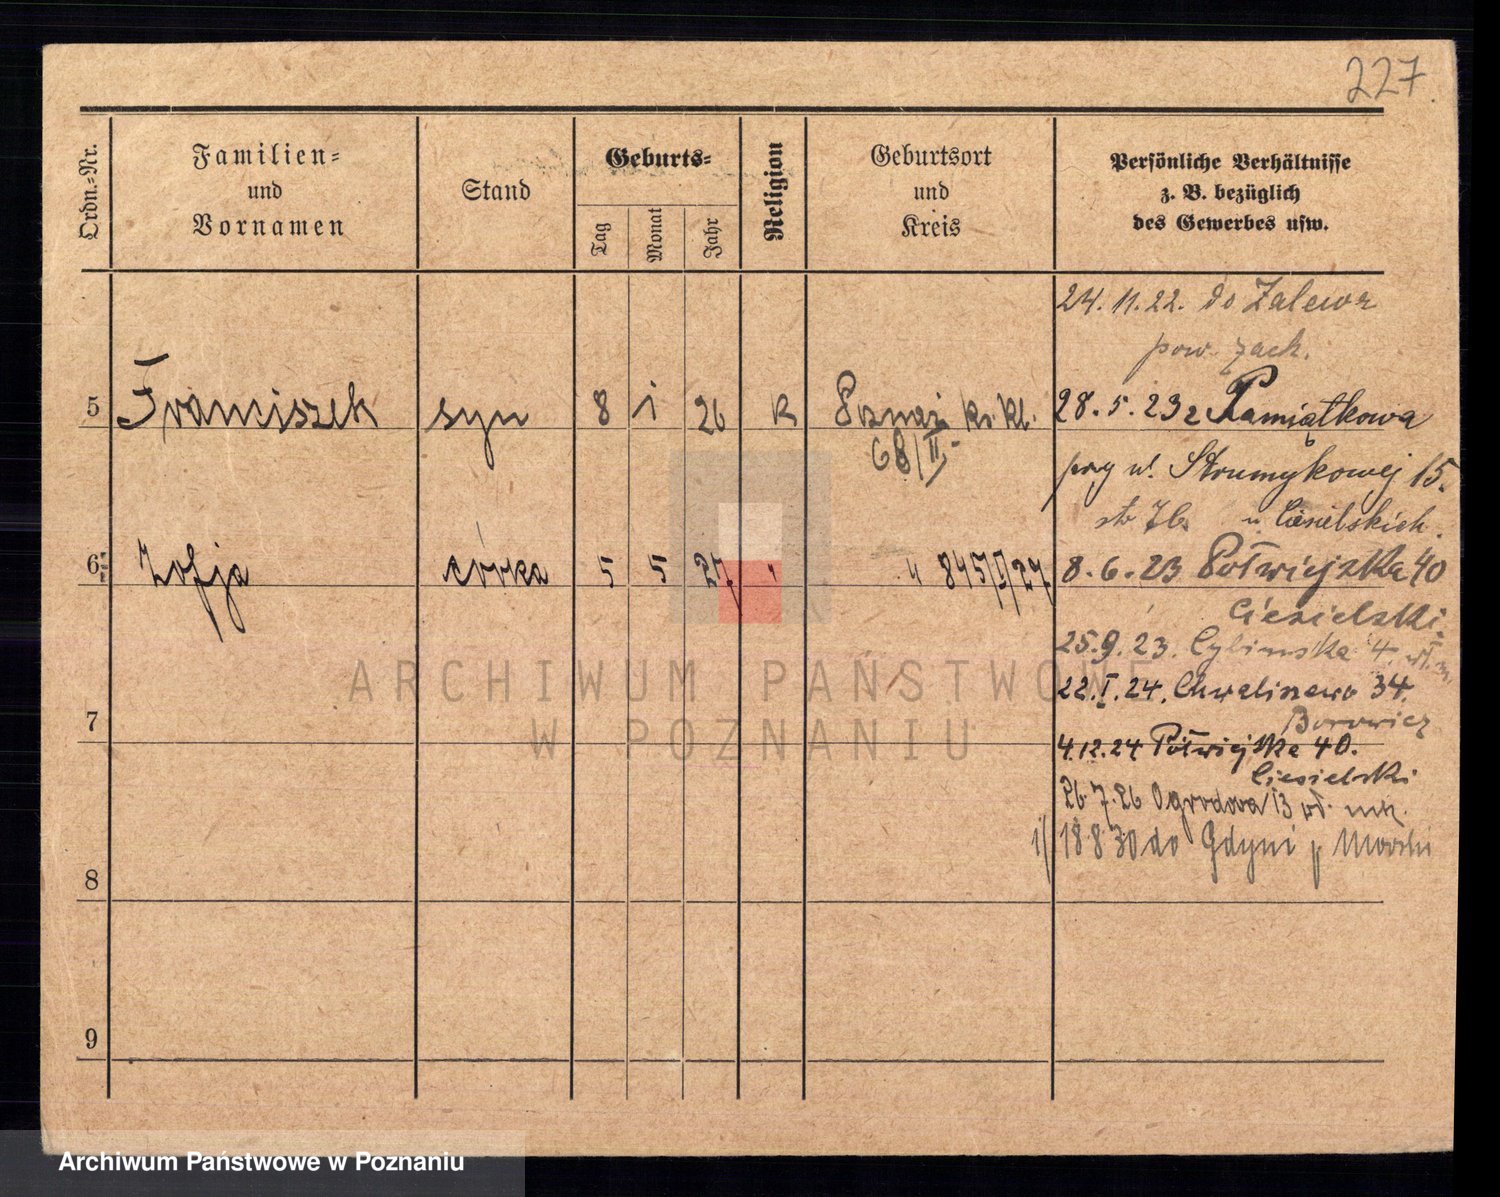 227.
Ordn.-Nr.
Familien-
und
Vornamen
Stand
Geburts-
Tag
Monat
Jahr
Religion
Geburtsort
und
Kreis
Persönliche Verhältnisse
z. B. bezüglich
des Gewerbes usw.
24. 11. 22. do Zalewa
pow. zach.
5 Franciszek syn 8 1 26 k Poznań
68/II
28. 5. 23 z Pamiątkowa
przy ul. Strumykowej 15.
u Ciesielskich.
6 Zofja córka 5 5 27 " " 845/II/27
8. 6. 23 Półwiejska 40
Ciesielski.
25. 9. 23. Cybinska 4.
22. I. 24. Chwaliszewo 34.
Borowicz
7
4. 12. 24 Półwiejska 40.
Ciesielski
26. 7. 26 Ogrodowa 13
1/ 18 8 30 do Gdyni
8
9
ARCHIWUM PAŃSTWOWE
W POZNANIU
Archiwum Państwowe w Poznaniu